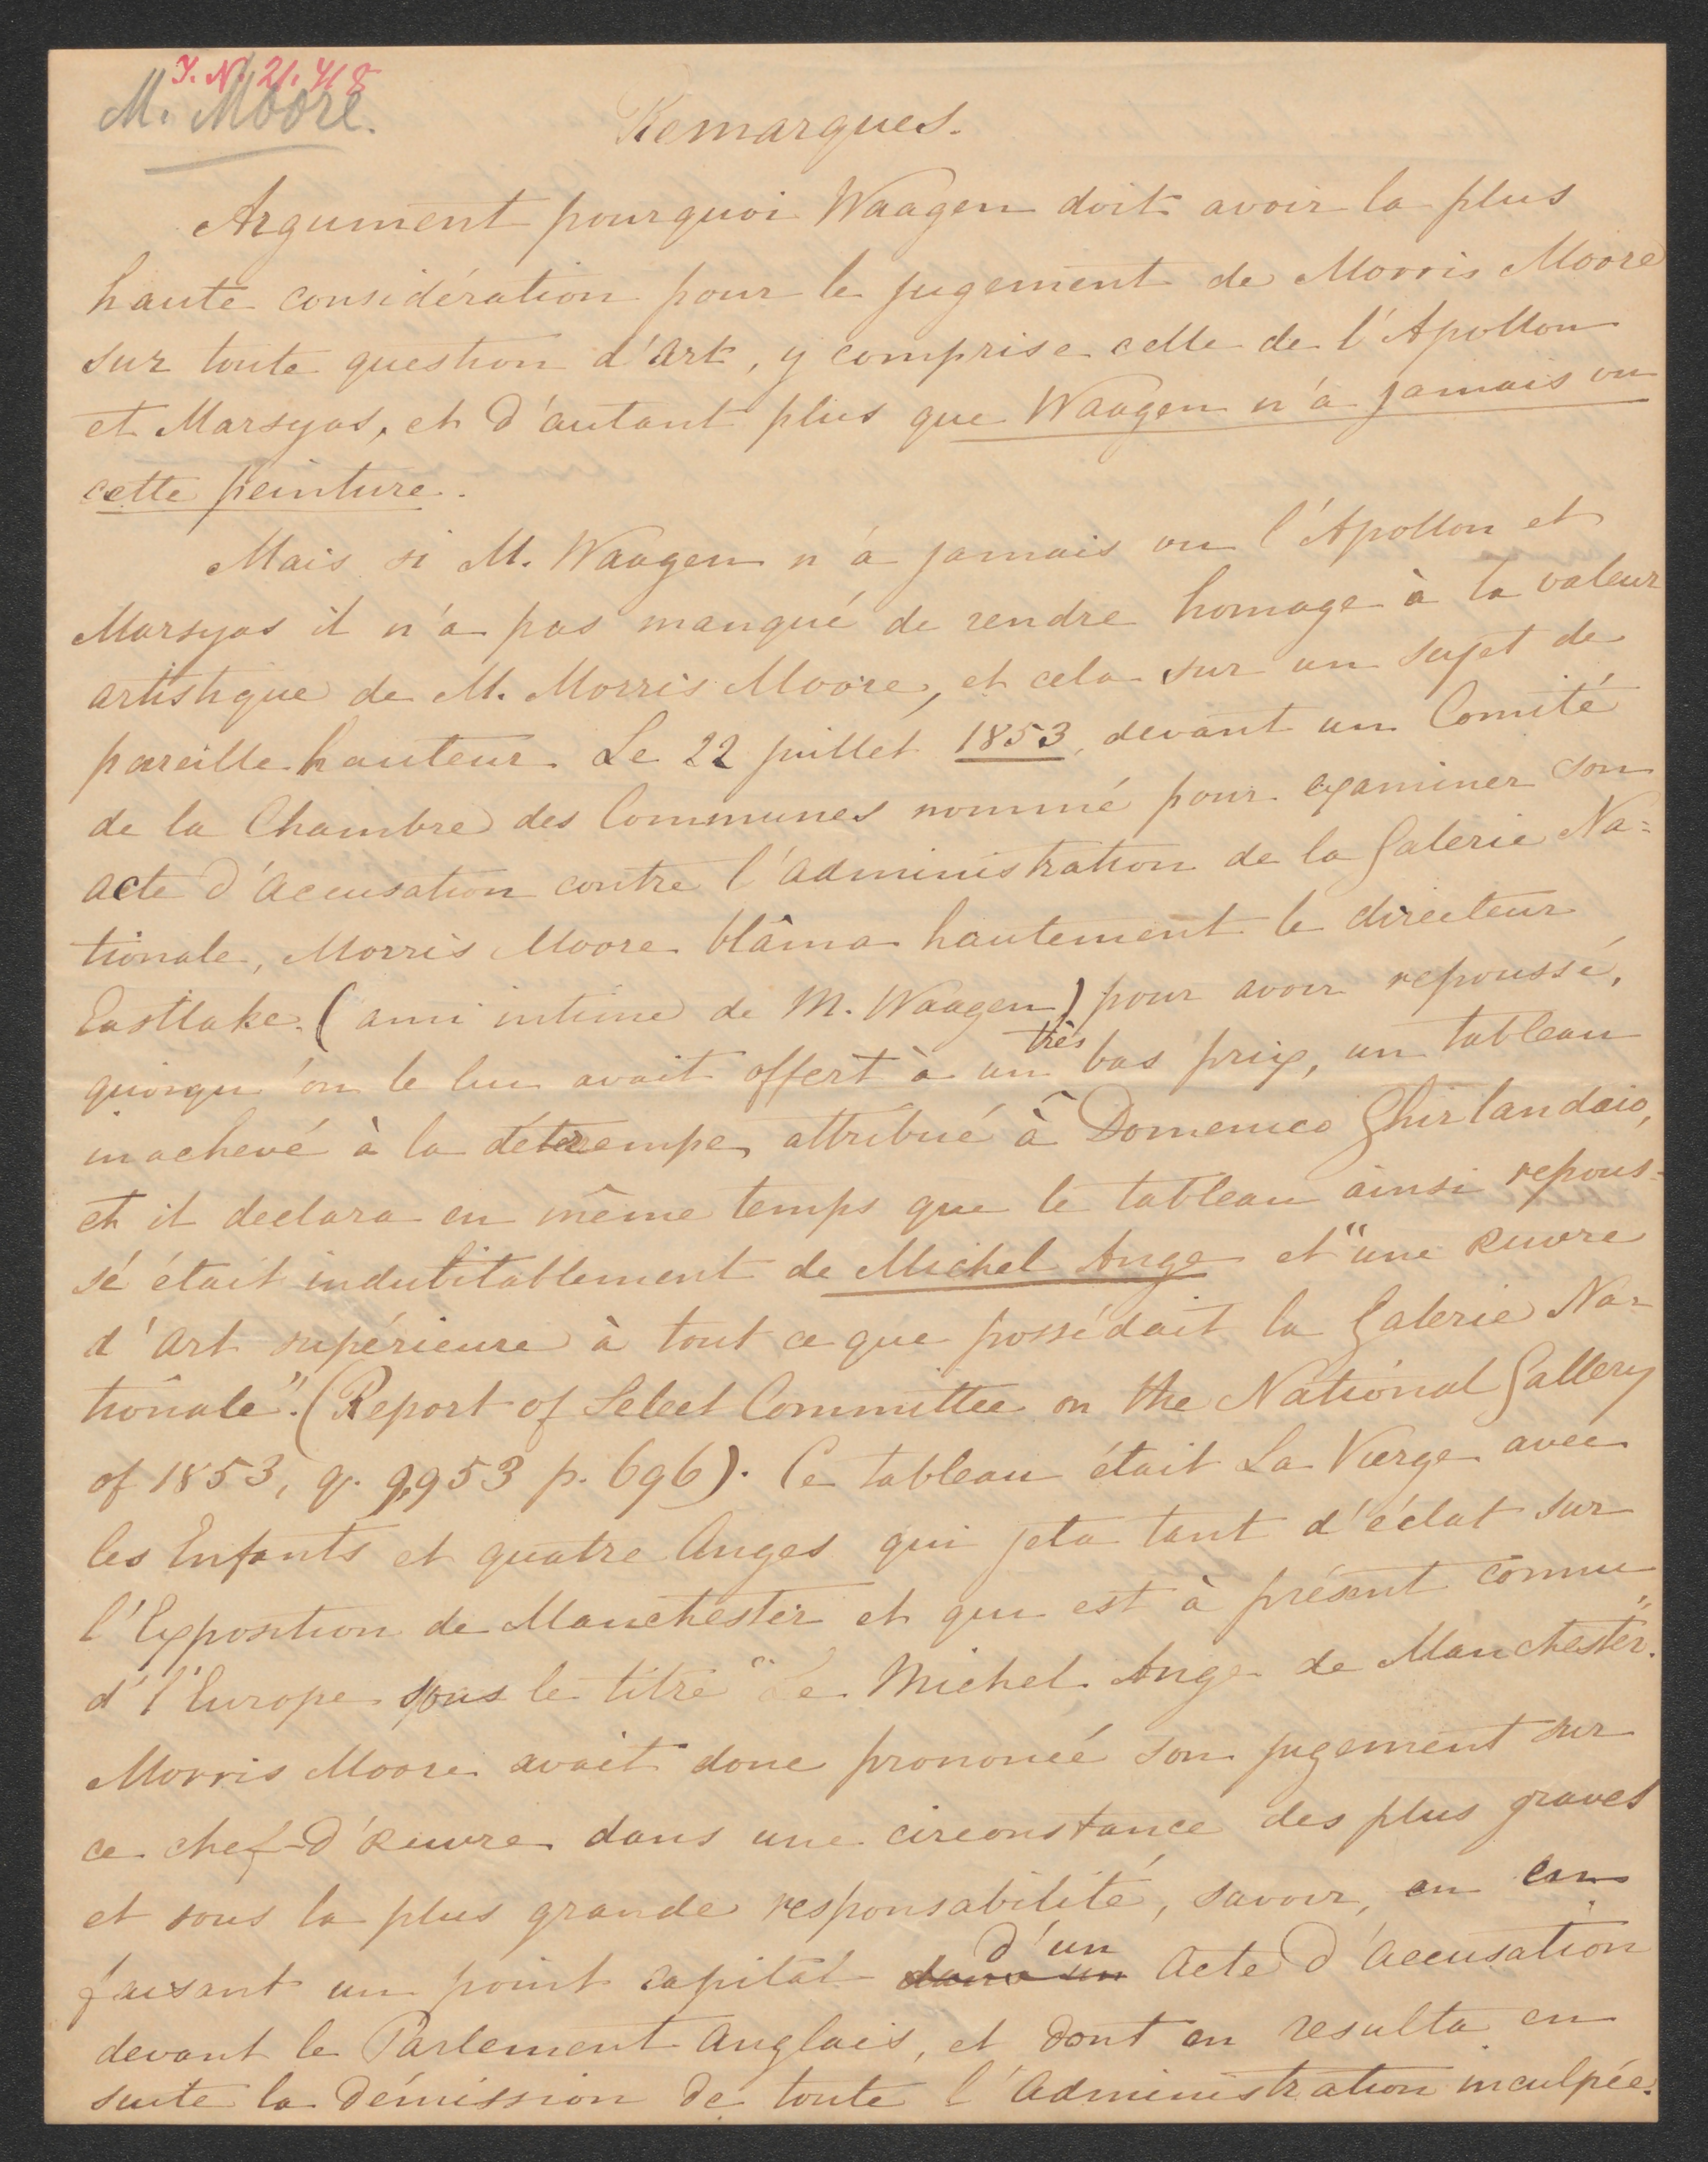 I. N. 21.418
M. Moore.
Remarques.
Argument pourquoi Waagen doit avoir la plus
haute considération pour le jugement de Morris Moore
sur toute question d'Art, y comprise celle de l'Apollon
et Marsyas, et d'autant plus que Waagen n'a jamais vu
cette peinture.
Mais si M. Waagen n'a jamais vu l'Apollon et
Marsyas il n'a pas manqué de rendre homage à la valeur
artistique de M. Morris Moore, et cela sur un sujet de
pareille hauteur. Le 22 juillet 1853, devant un Comité
de la Chambre des Communes nommé pour examiner son
acte d'Accusation contre l'Administration de la Galerie Na=
tionale, Morris Moore blâma hautement le directeur
Eastlake (ami intime de M. Waagen) pour avoir repoussé,
quoiqu'on le lui avait offert à un très bas prix, un tableau
inachevé à la détrempe, attribué à Domenico Ghirlandaio,
et il declara en même temps que le tableau ainsi repous=
sé était indubitablement de Michel Ange et "une œuvre
d'Art supérieure à tout ce que possédait la Galerie Na=
tionale". (Report of Select Committee on the National Gallery
of 1853, q. 9,953 p. 696). Ce tableau était La Vierge avec
les Enfants et quatre Anges qui jeta tant d'éclat sur
l'Exposition de Manchester et qui est à présent connu
d'l'Europe sous le titre "Le Michel Ange de Manchester."
Morris Moore avait donc prononcé son jugement sur
ce chef-d'œuvre dans une circonstance des plus graves
et sous la plus grande responsabilité, savoir, en en
faisant un point capital dans un d'un Acte d'Accusation
devant le Parlement Anglais, et dont en resulta en
suite la démission de toute l'Administration inculpée.